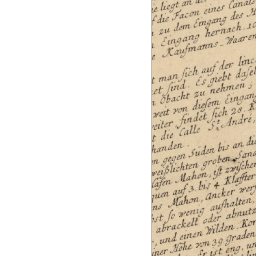 ie liegt an d
ff die Facon eines Canals
n zu dem Eingang des H
n Eingang hernach 10
e Kaufmanns-Waaren
t man sich auf der linc
et sind. Es giebt dasel
n Obacht zu nehmen;
weit von diesem Eingang
eiter findet sich 28 K
t die Calle St. André,
handen.
n gegen Süden bis an die
weißlichten groben Sand
hafen Mahon, ist zwischen
um auf 3. bis 4. Klaffter
ns Mahon, Ancker werf
st, so wenig aufhalten,
abrackelt oder abnutz
, und einen Wilden. Kor
iner Höhe von 39 graden
er ist eng, und